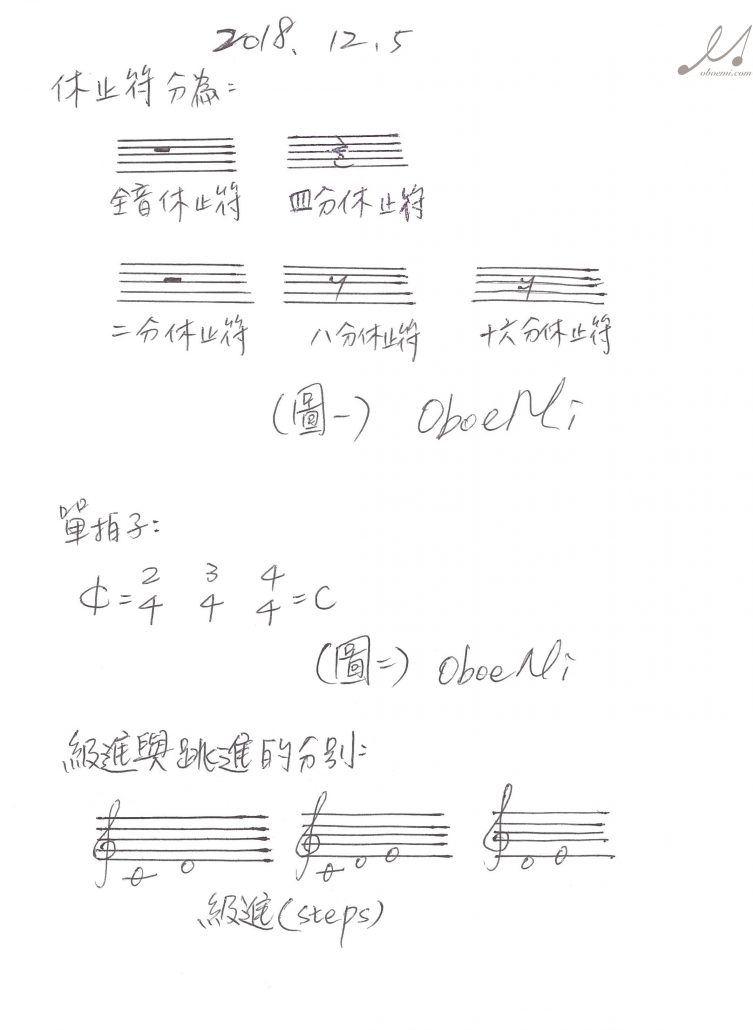 2018. 12. 5
oboemi.com
休止符分為:
全音休止符 四分休止符
二分休止符 八分休止符 十六分休止符
(圖一) OboeMi
單拍子:
2 3 4
¢ = 4 4 4 = C
(圖二) OboeMi
級進與跳進的分別:
級進(steps)